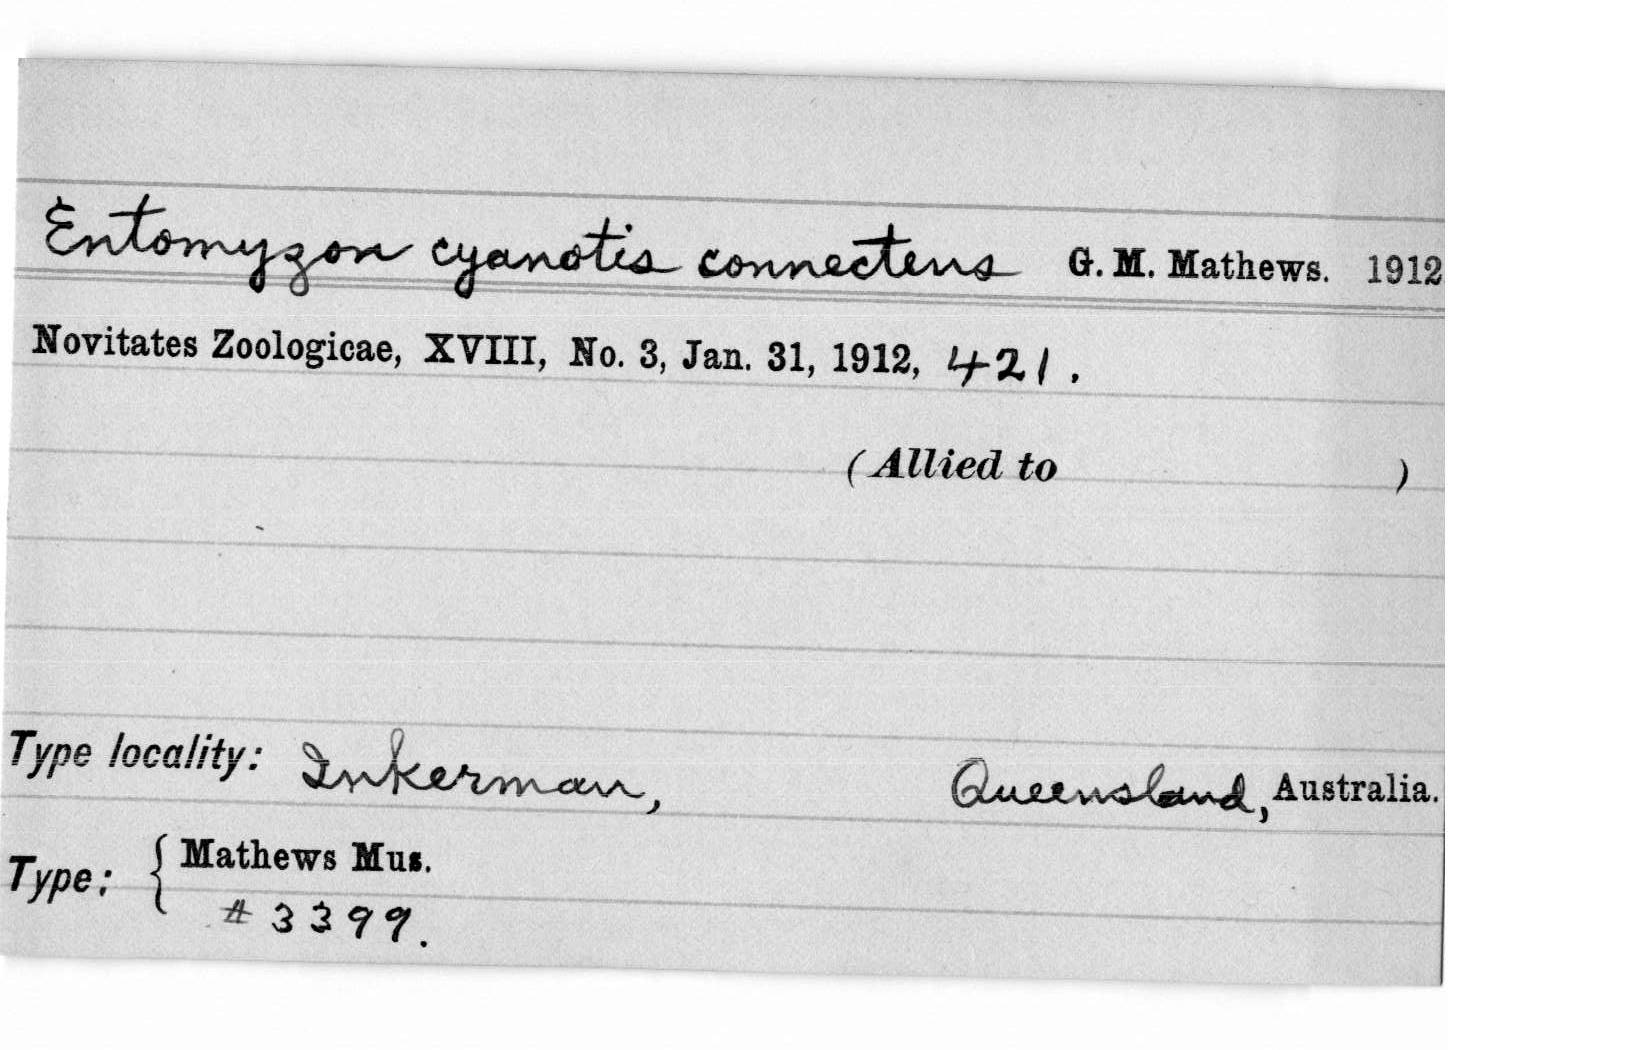 Entomyzon cyanotis connectens G. M. Mathews. 1912
Novitates Zoologicae, XVIII, No. 3, Jan. 31, 1912, 421.
(Allied to )
Type locality: Inkerman, Queensland, Australia.
Type: { Mathews Mus.
# 3399.